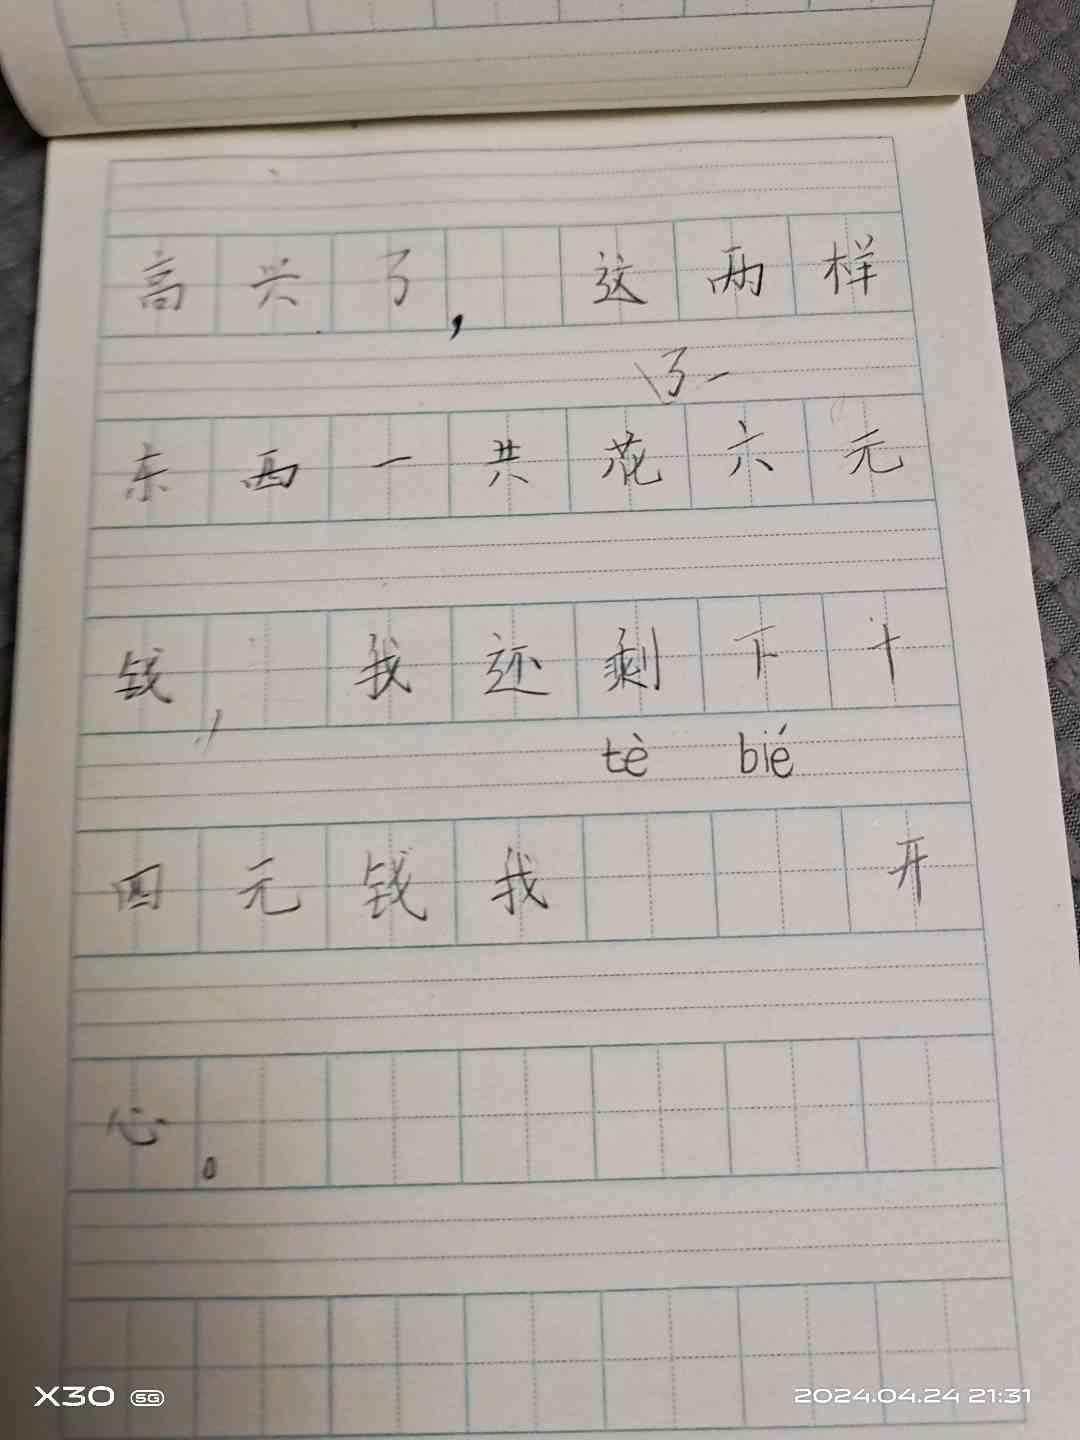 高兴了，这两样
了
东西一共花六元
钱，我还剩下十
tè bié
四元钱我 开
心。
X30 5G
2024.04.24 21:31